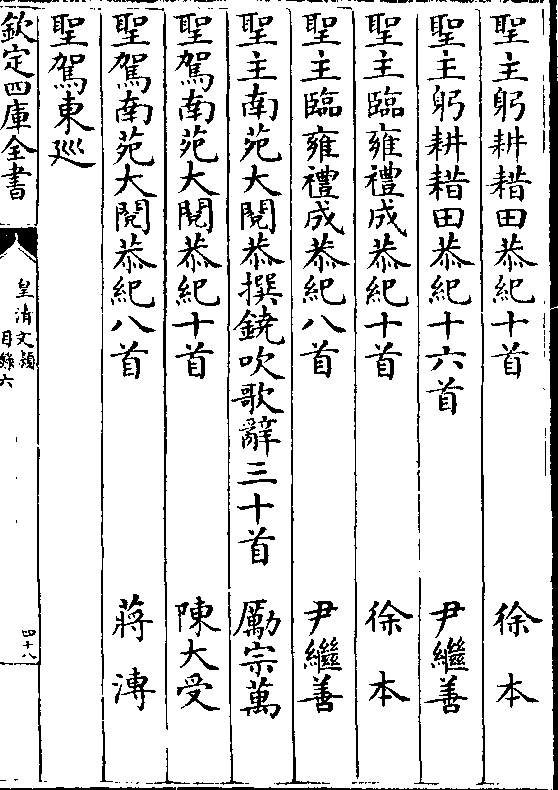 聖主躬耕耤田恭紀十首 徐本
聖主躬耕耤田恭紀十六首 尹繼善
聖主臨雍禮成恭紀十首 徐本
聖主臨雍禮成恭紀八首 尹繼善
聖主南苑大閱恭撰鐃吹歌辭三十首 勵宗萬
聖駕南苑大閱恭紀十首 陳大受
聖駕南苑大閱恭紀八首 蔣溥
聖駕東巡
欽定四庫全書
皇清文穎
目錄六
四十八